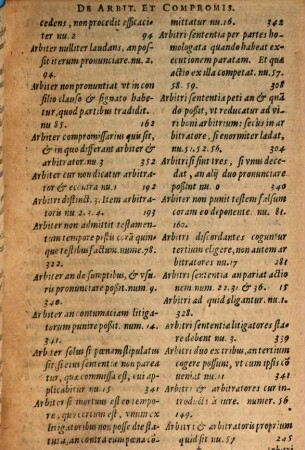 DE ARBIT. ET COMPROMIS.
cedens, non procedit efficaciter
nu. 2 94
Arbiter nulliter laudans, an possit
iterum pronunciare. nu. 2.
94.
Arbiter non pronuntiat vt in consilio
clauso & signato habetur,
quod partibus tradidit.
nu 85. 162
Arbiter compromissarius quis sit,
& in quo differant arbiter &
arbitrator. nu. 3 352
Arbiter cur non dicatur arbitrator
& econtra nu. 1 192
Arbitri distinct. 3. Item arbitratoris
nu 2. 3. 4. 193
Arbiter non admittit testamentum
tempore pestis corã quinque
testibus factum. nume. 78.
322.
Arbiter an de sumptibus, & vsuris
pronunciare possit. num. 9.
340.
Arbiter an contumaciam litigatorum
punire possit. num. 14.
341.
Arbiter solus si pœnam stipulatus
sit: si eius sententia non pareatur,
quæ commissa est, cui applicabitur
nu. 15 341
Arbiter si mortuus est eo tempore,
quo feriatur, & vnum ex
litigatoribus non posse die statura,
an contra eum pœna committatur
nu. 16. 342
Arbitri sententia per partes homologata
quando habeat executionem
paratam. Et quæ
actio ex illa competat. nu. 57.
58. 59. 308
Arbitri sententia peti an & quãdo
possit, vt reducatur ad viri
boni arbitrium: secùs in arbitratore,
si enormiter lædat,
nu. 51. 52. 56. 304
Arbitri si sunt tres, si vnus decedat,
an alij duo pronunciare
possint nu. 0 340
Arbiter non punit testem falsum
coram eo deponente. nu. 81.
160.
Arbitri discordantes coguntur
tertium eligere, non autem arbitratores
nu. 17 281
Arbitri sententia an pariat actionem
num. 22. 31. & 36. 15
Arbitri ad quid eligantur. nu. 1.
328.
Arbitri sententia litigatores stare
debent nu. 3. 339
Arbitri duo ex tribus, an tertium
cogere possunt, vt cum ipsis conueniat
nu. 11 341
Arbitri & arbitratores cur introducti
à iure. numer. 56.
149.
Arbitri & arbitratoris proprium
quid sit nu. 57 205